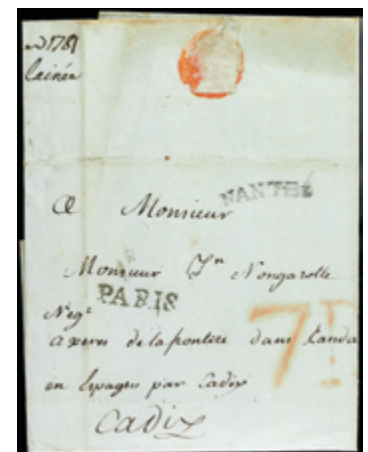 1781
NANTES
A Monsieur
Monsieur Jn Nongarolle
Negt
PARIS
a xeres de la frontere dans Landa
7R
en Espagne par Cadix
Cadix